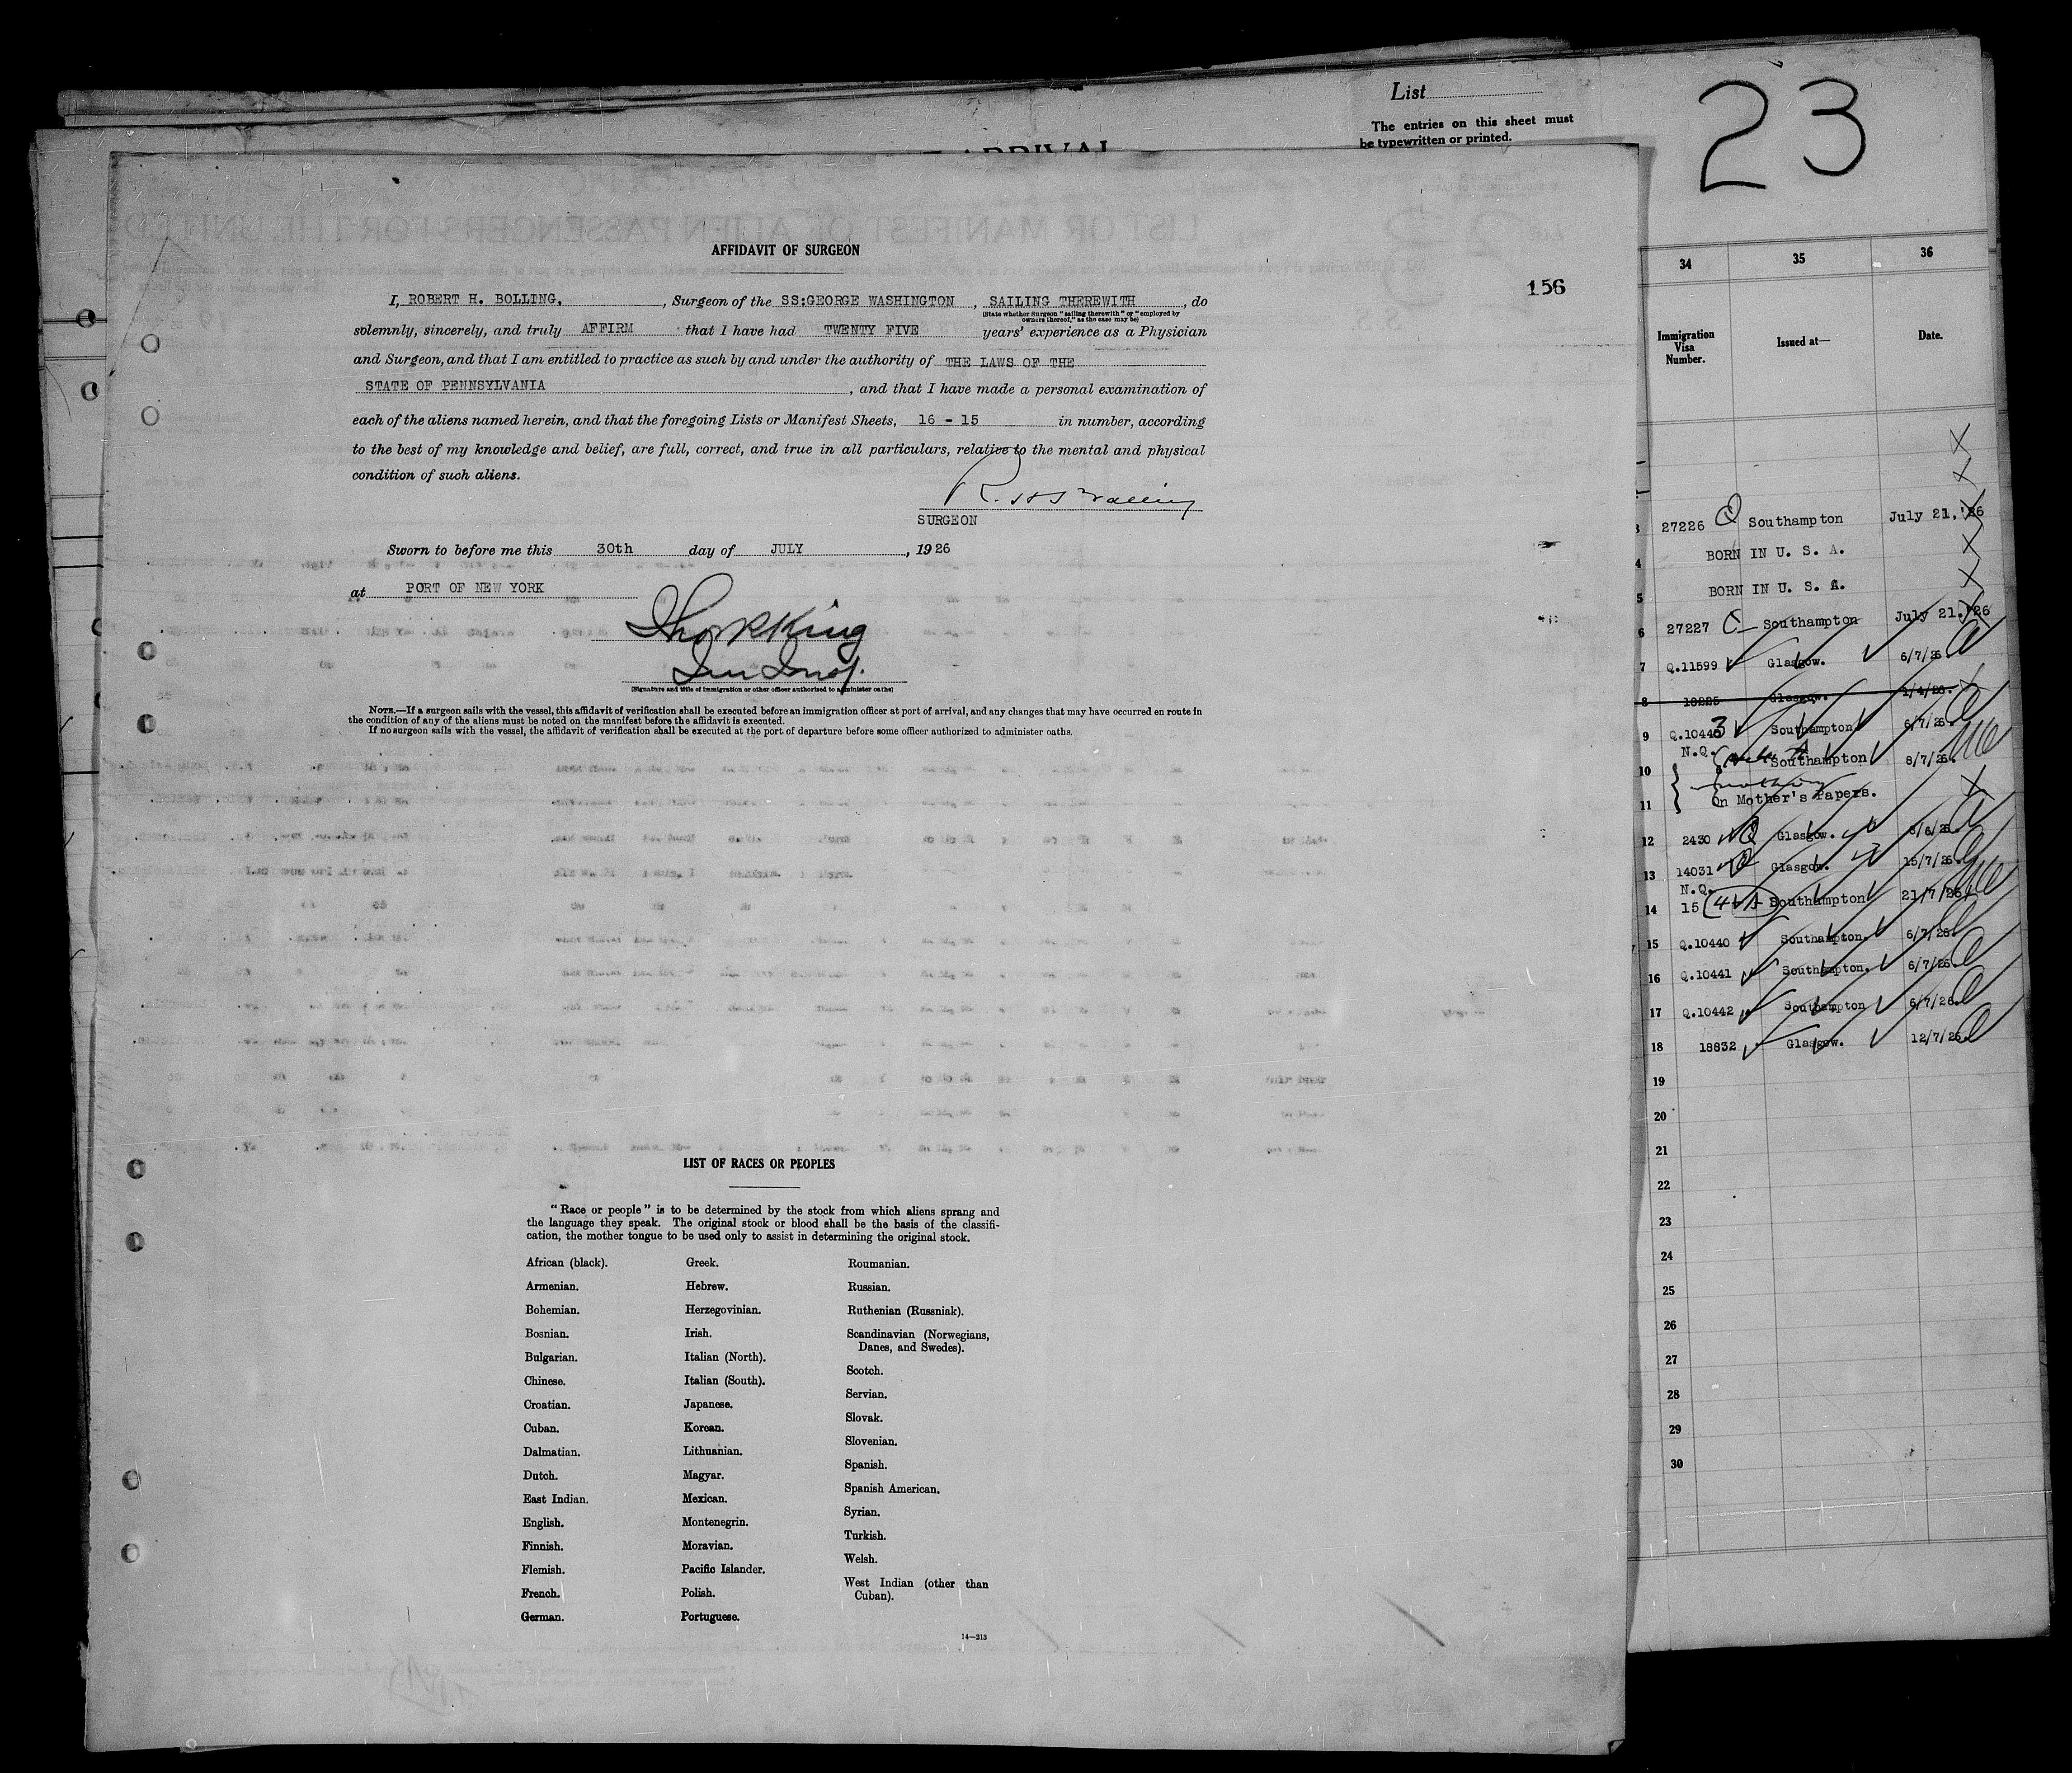 List
The entries on this sheet must
be typewritten or printed.
23
ARRIVAL
AFFIDAVIT OF SURGEON
156
I, ROBERT H. BOLLING, , Surgeon of the SS:GEORGE WASHINGTON , SAILING THEREWITH , do
(State whether Surgeon "sailing therewith" or "employed by
owners thereof," as the case may be)
solemnly, sincerely, and truly AFFIRM that I have had TWENTY FIVE years' experience as a Physician
and Surgeon, and that I am entitled to practice as such by and under the authority of THE LAWS OF THE
STATE OF PENNSYLVANIA , and that I have made a personal examination of
each of the aliens named herein, and that the foregoing Lists or Manifest Sheets, 16 - 15 in number, according
to the best of my knowledge and belief, are full, correct, and true in all particulars, relative to the mental and physical
condition of such aliens.
SURGEON
Sworn to before me this 30th day of JULY , 1926
at PORT OF NEW YORK
(Signature and title of immigration or other officer authorized to administer oaths)
NOTE.—If a surgeon sails with the vessel, this affidavit of verification shall be executed before an immigration officer at port of arrival, and any changes that may have occurred en route in
the condition of any of the aliens must be noted on the manifest before the affidavit is executed.
If no surgeon sails with the vessel, the affidavit of verification shall be executed at the port of departure before some officer authorized to administer oaths.
LIST OF RACES OR PEOPLES
"Race or people" is to be determined by the stock from which aliens sprang and
the language they speak. The original stock or blood shall be the basis of the classifi-
cation, the mother tongue to be used only to assist in determining the original stock.
African (black).
Armenian.
Bohemian.
Bosnian.
Bulgarian.
Chinese.
Croatian.
Cuban.
Dalmatian.
Dutch.
East Indian.
English.
Finnish.
Flemish.
French.
German.
Greek.
Hebrew.
Herzegovinian.
Irish.
Italian (North).
Italian (South).
Japanese.
Korean.
Lithuanian.
Magyar.
Mexican.
Montenegrin.
Moravian.
Pacific Islander.
Polish.
Portuguese.
Roumanian.
Russian.
Ruthenian (Russniak).
Scandinavian (Norwegians,
Danes, and Swedes).
Scotch.
Servian.
Slovak.
Slovenian.
Spanish.
Spanish American.
Syrian.
Turkish.
Welsh.
West Indian (other than
Cuban).
14—213
34 35 36
Immigration
Visa
Number.
Issued at—
Date.
3 27226 Q Southampton July 21,'26
4 BORN IN U. S. A.
5 BORN IN U. S. A.
6 27227 Southampton July 21.'26
7 Q.11599 Glasgow. 6/7/26.
8 18225 Glasgow. 1/4/26.
9 Q.10443 Southampton 6/7/26.
N.Q.
10 Southampton 8/7/26.
11 On Mother's Papers.
12 2430 Q Glasgow. 8/6/26.
13 14031 Q Glasgow. 15/7/26.
N.Q.
14 15 Southampton 21/7/26
15 Q.10440 Southampton. 6/7/26.
16 Q.10441 Southampton. 6/7/26.
17 Q.10442 Southampton 6/7/26.
18 18832 Glasgow. 12/7/26.
19
20
21
22
23
24
25
26
27
28
29
30